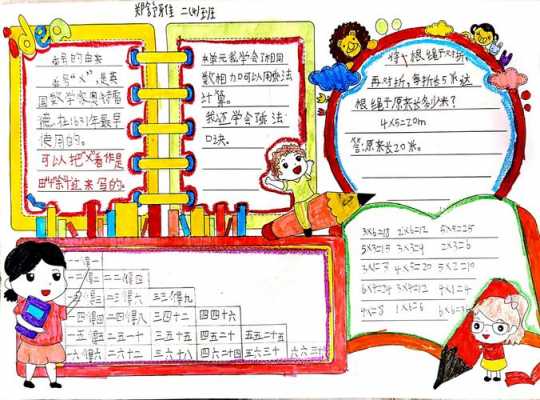 二(4)班
乘号的由来
乘号"×",是英
国数学家奥特雷
德,在1631年最早
使用的。
可以把"×"看作是
本单元我学会了相同
数相加可以用乘法
计算。
我还学会了乘法
口诀。
将1根绳子对折,
再对折,每折长5米这
根绳子原来长多少米?
4×5=20m
答:原来长20米。
3×6=18 2×6=12 5×5=25
5×3=15 3×3=9 2×3=6
3×1=3 4×5=20 5×2=10
6×4=24 3×4=12 4×1=4
1×6=6
一二得二 二二得四
一三得三 二三得六 三三得九
一四得四 二四得八 三四十二 四四十六
一五得五 二五一十 三五十五 四五二十 五五二十五
一六得六 二六十二 三六十八 四六二十四 五六三十